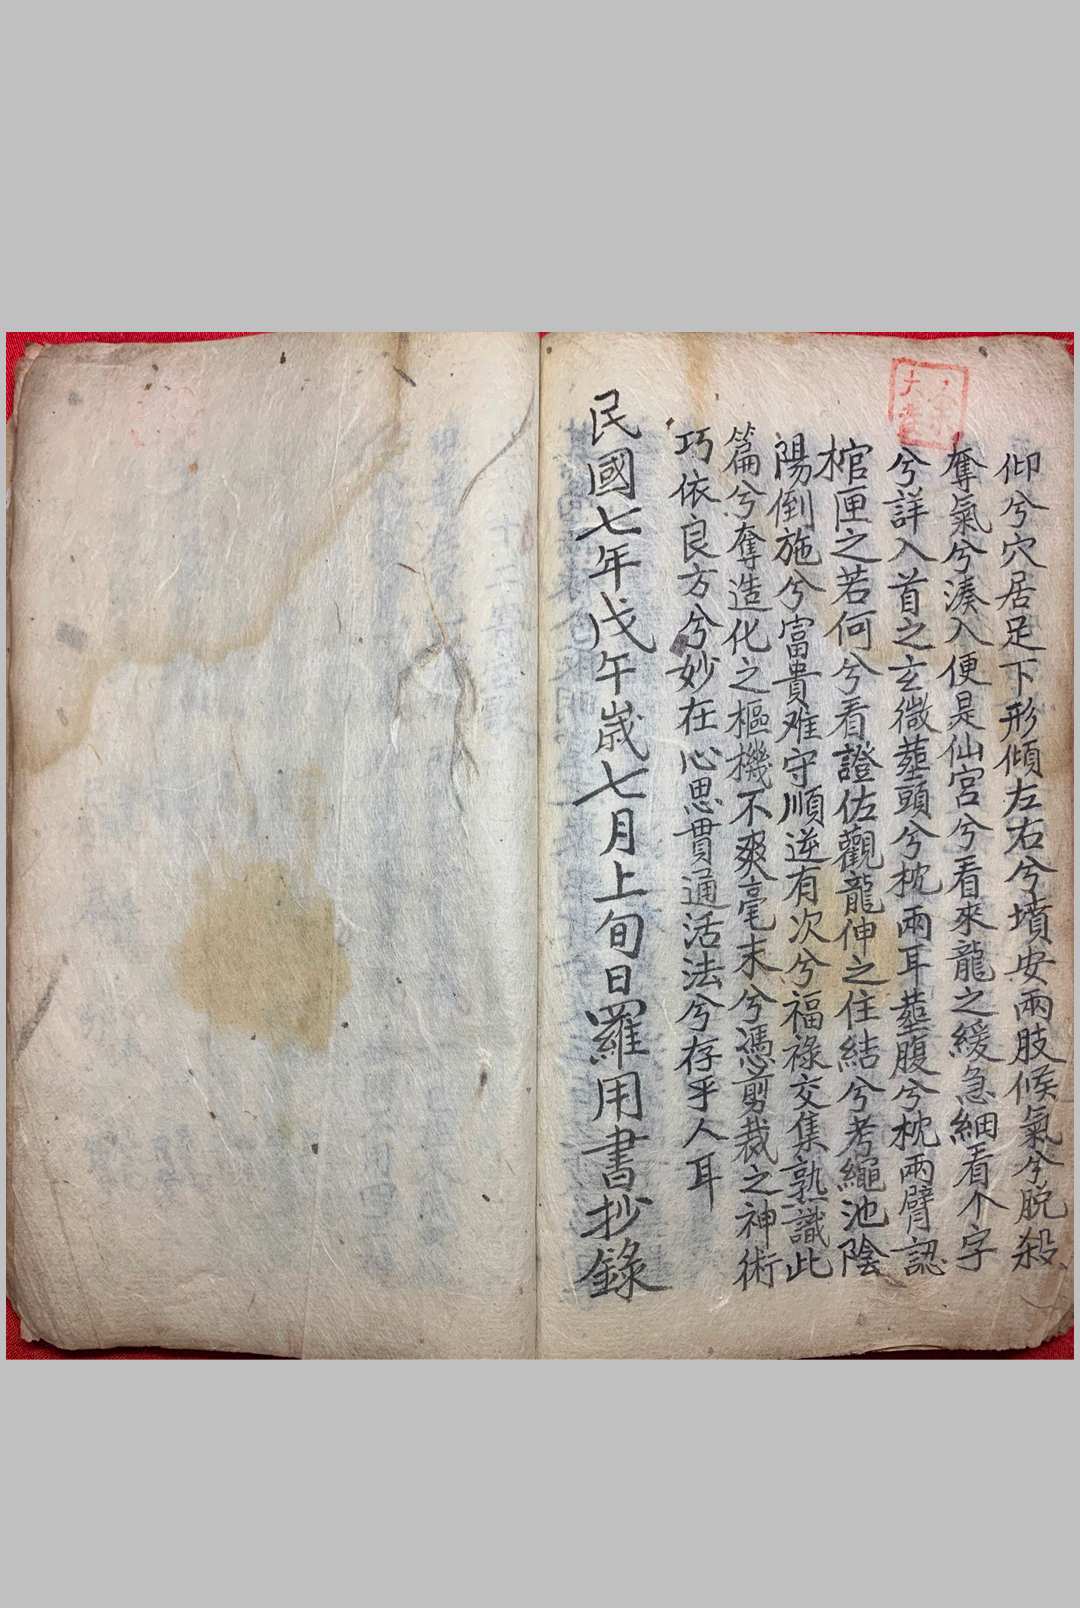 仰兮穴居足下形傾左右兮墳安兩肢候氣兮脱殺
奪氣兮湊入便是仙宮兮看來龍之緩急細看个字
兮詳入首之玄微塟頭兮枕兩耳塟腹兮枕兩臂認
棺匣之若何兮看證佐觀龍伸之住結兮考繩池陰
陽倒施兮富貴难守順逆有次兮福祿交集熟識此
篇兮奪造化之樞機不爽毫末兮憑剪裁之神術
巧依良方兮妙在心思貫通活法兮存乎人耳
民國七年戊午歲七月上旬日羅用書抄錄